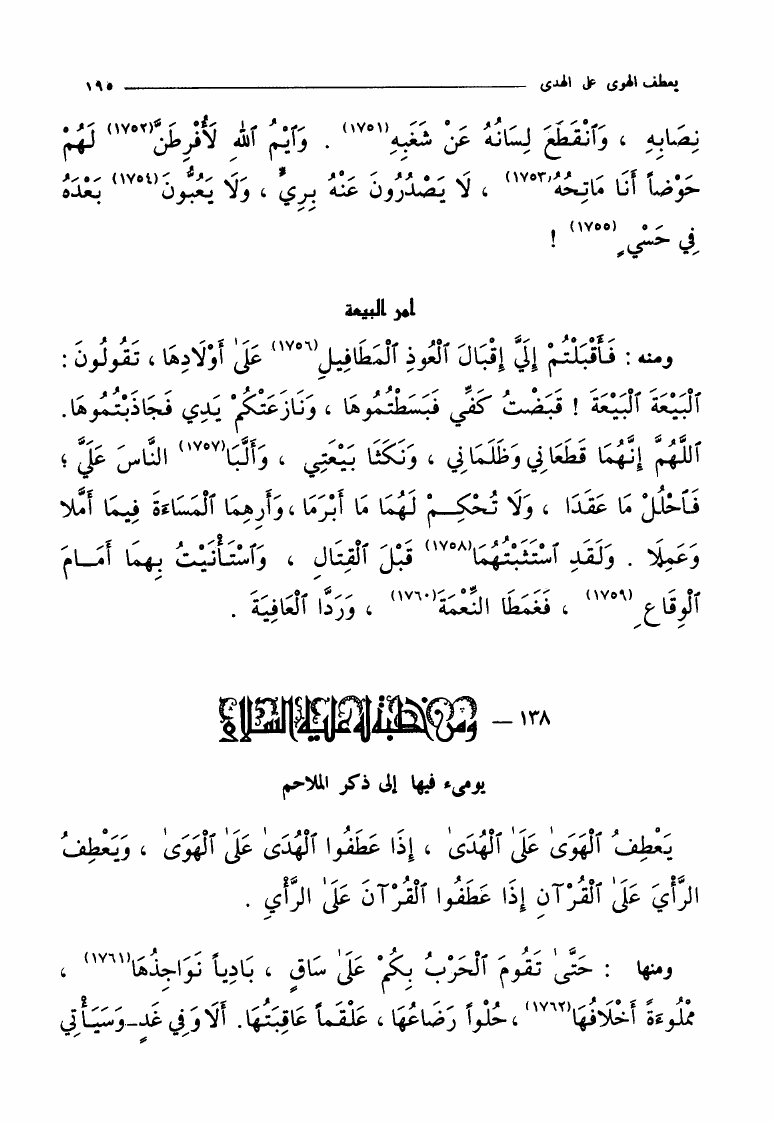 يعطف الهوى على الهدى ١٩٥
نِصَابِهِ ، وَٱنْقَطَعَ لِسَانُهُ عَنْ شَغَبِهِ(١٧٥١) . وَٱيْمُ ٱللهِ لَأُفْرِطَنَّ(١٧٥٢) لَهُمْ
حَوْضاً أَنَا مَاتِحُهُ(١٧٥٣) ، لَا يَصْدُرُونَ عَنْهُ بِرِيٍّ ، وَلَا يَعُبُّونَ(١٧٥٤) بَعْدَهُ
فِي حَسْيٍ(١٧٥٥) !
أمر البيعة
ومنه : فَأَقْبَلْتُمْ إِلَيَّ إِقْبَالَ ٱلْعُوذِ ٱلْمَطَافِيلِ(١٧٥٦) عَلَىٰ أَوْلَادِهَا ، تَقُولُونَ :
ٱلْبَيْعَةَ ٱلْبَيْعَةَ ! قَبَضْتُ كَفِّي فَبَسَطْتُمُوهَا ، وَنَازَعَتْكُمْ يَدِي فَجَاذَبْتُمُوهَا.
ٱللَّهُمَّ إِنَّهُمَا قَطَعَانِي وَظَلَمَانِي ، وَنَكَثَا بَيْعَتِي ، وَأَلَّبَا(١٧٥٧) النَّاسَ عَلَيَّ ؛
فَٱحْلُلْ مَا عَقَدَا ، وَلَا تُحْكِمْ لَهُمَا مَا أَبْرَمَا ، وَأَرِهِمَا ٱلْمَسَاءَةَ فِيمَا أَمَّلَا
وَعَمِلَا . وَلَقَدِ ٱسْتَثَبْتُهُمَا(١٧٥٨) قَبْلَ ٱلْقِتَالِ ، وَٱسْتَأْنَيْتُ بِهِمَا أَمَامَ
ٱلْوِقَاعِ(١٧٥٩) ، فَغَمَطَا النِّعْمَةَ(١٧٦٠) ، وَرَدَّا ٱلْعَافِيَةَ .
١٣٨ – ومن خطبة له عليه السلام
يومىء فيها إلى ذكر الملاحم
يَعْطِفُ ٱلْهَوَىٰ عَلَىٰ ٱلْهُدَىٰ ، إِذَا عَطَفُوا ٱلْهُدَىٰ عَلَىٰ ٱلْهَوَىٰ ، وَيَعْطِفُ
الرَّأْيَ عَلَىٰ ٱلْقُرْآنِ إِذَا عَطَفُوا ٱلْقُرْآنَ عَلَىٰ الرَّأْيِ .
ومنها : حَتَّىٰ تَقُومَ ٱلْحَرْبُ بِكُمْ عَلَىٰ سَاقٍ ، بَادِياً نَوَاجِذُهَا(١٧٦١) ،
مَمْلُوءَةً أَخْلَافُهَا(١٧٦٢) ، حُلْواً رَضَاعُهَا ، عَلْقَماً عَاقِبَتُهَا. أَلَا وَفِي غَدٍ_وَسَيَأْتِي